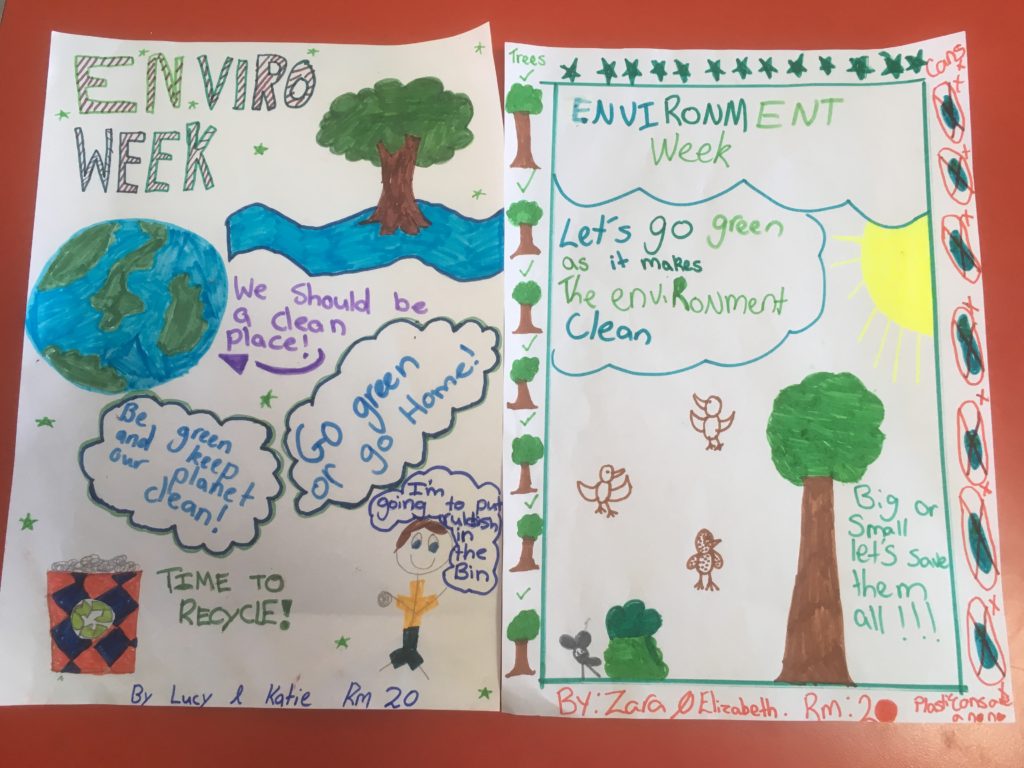 ENVIRO
WEEK
We should be
a clean
place!
Go green
or go Home!
Be green
and keep
our planet
clean!
I'm
going to put
rubbish
in
the
Bin
TIME TO
RECYCLE!
By Lucy & Katie Rm 20
Trees
ENVIRONMENT
Week
Let's go green
as it makes
The enviRonment
Clean
Big or
Small
let's save
them
all!!!
By: Zara & Elizabeth. Rm: 20
Cans
Plastic cans are
a no no